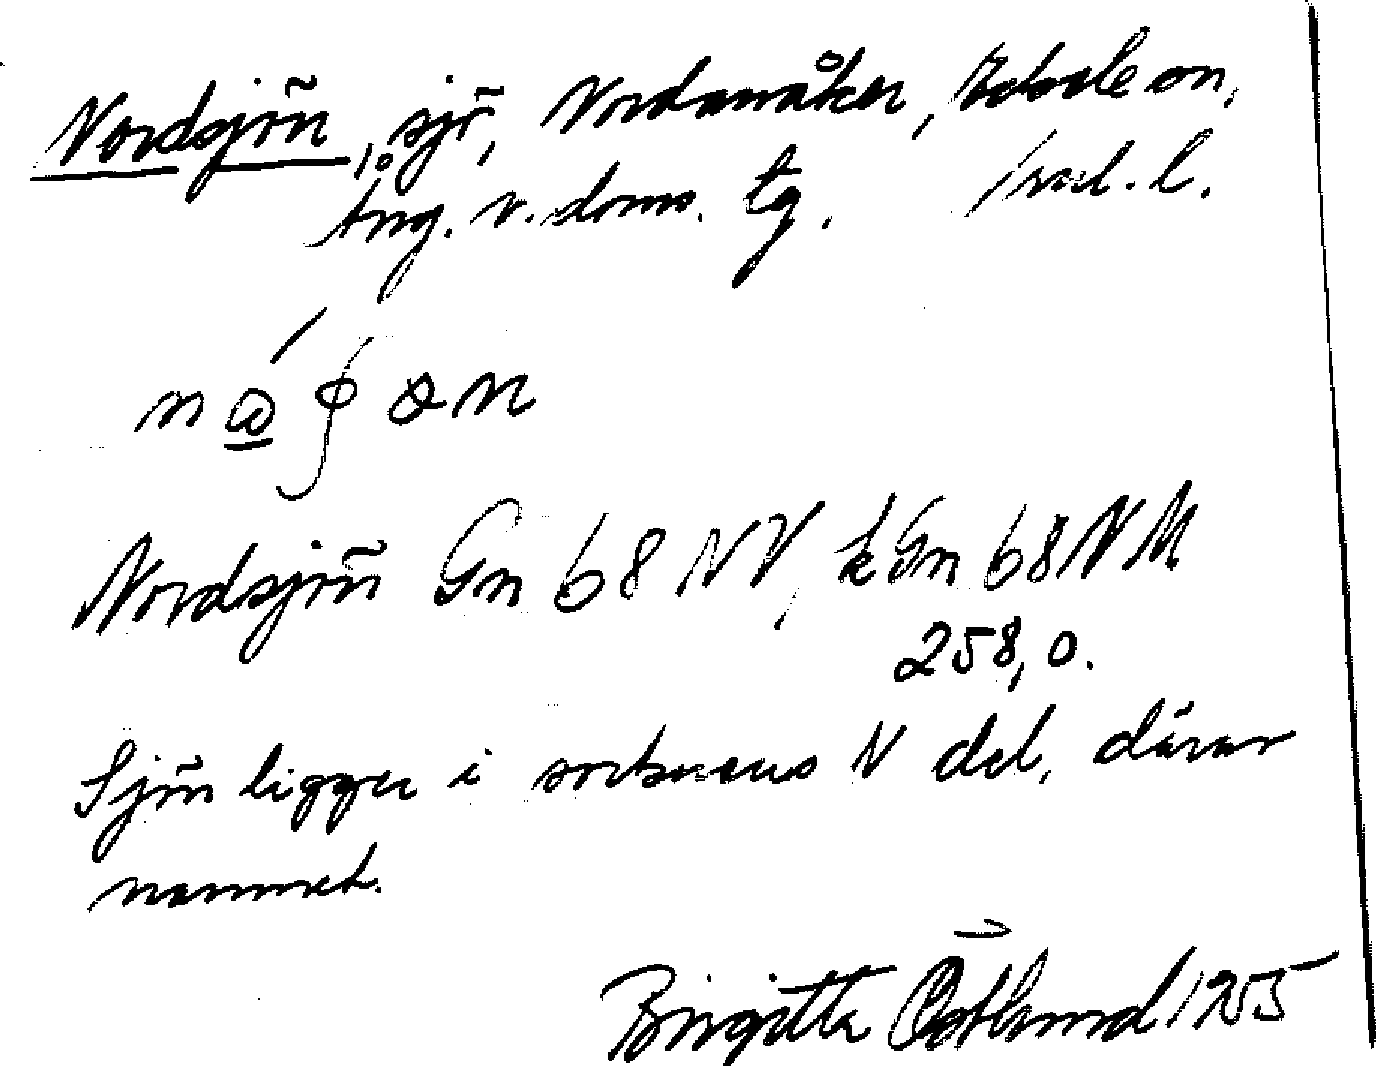 Nordsjön, sjö, Nordanåker, Edsele sn,
Ång. v. doms. tg. /snd. l.
Nordsjön Gn 68 NV, kGn 68 NV
258,0.
Sjön ligger i socknens N del, därav
namnet.
Birgitta Östlund 1955